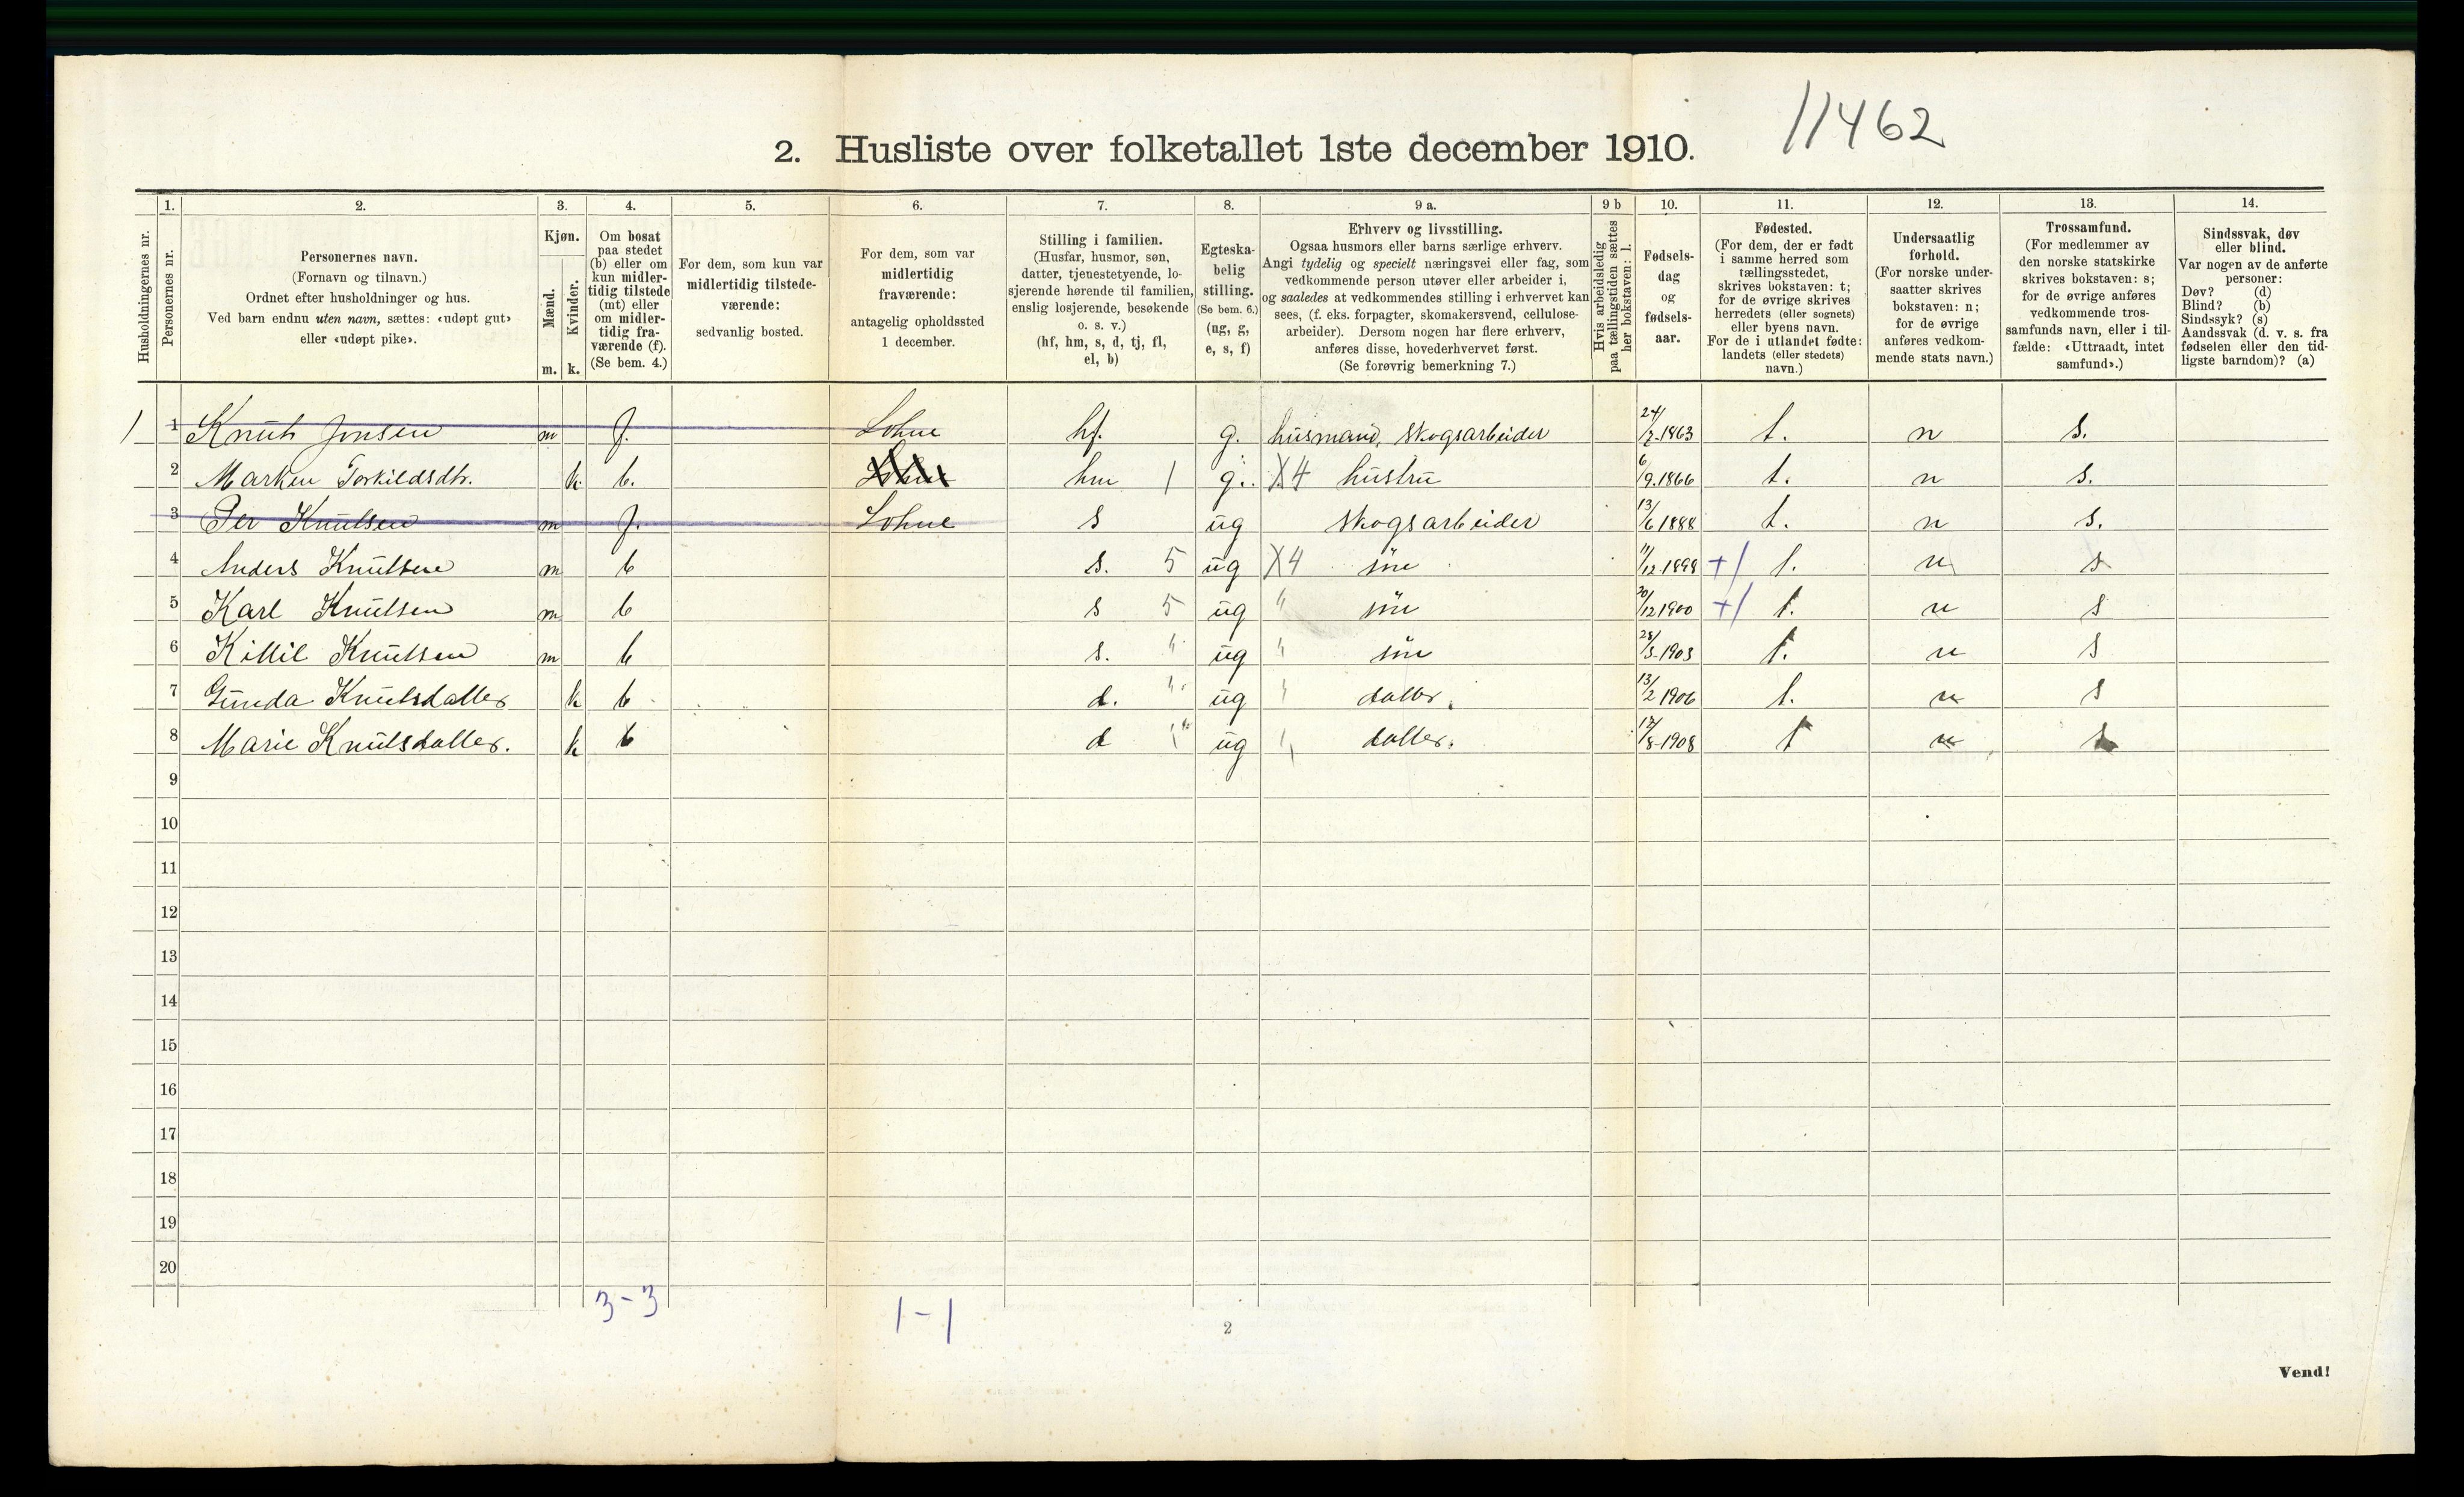 11462
2. Husliste over folketallet 1ste december 1910.
1. 2. 3. 4. 5. 6. 7. 8. 9 a. 9 b 10. 11. 12. 13. 14.
Husholdningernes nr.
Personernes nr.
Personernes navn.
(Fornavn og tilnavn.)
Ordnet efter husholdninger og hus.
Ved barn endnu uten navn, sættes: «udøpt gut»
eller «udøpt pike».
Kjøn.
Mænd.
Kvinder.
m. k.
Om bosat
paa stedet
(b) eller om
kun midler-
tidig tilstede
(mt) eller
om midler-
tidig fra-
værende (f).
(Se bem. 4.)
For dem, som kun var
midlertidig tilstede-
værende:
sedvanlig bosted.
For dem, som var
midlertidig
fraværende:
antagelig opholdssted
1 december.
Stilling i familien.
(Husfar, husmor, søn,
datter, tjenestetyende, lo-
sjerende hørende til familien,
enslig losjerende, besøkende
o. s. v.)
(hf, hm, s, d, tj, fl,
el, b)
Egteska-
belig
stilling.
(Se bem. 6.)
(ug, g,
e, s, f)
Erhverv og livsstilling.
Ogsaa husmors eller barns særlige erhverv.
Angi tydelig og specielt næringsvei eller fag, som
vedkommende person utøver eller arbeider i,
og saaledes at vedkommendes stilling i erhvervet kan
sees, (f. eks. forpagter, skomakersvend, cellulose-
arbeider). Dersom nogen har flere erhverv,
anføres disse, hovederhvervet først.
(Se forøvrig bemerkning 7.)
Hvis arbeidsledig
paa tællingstiden sættes
her bokstaven: l.
Fødsels-
dag
og
fødsels-
aar.
Fødested.
(For dem, der er født
i samme herred som
tællingsstedet,
skrives bokstaven: t;
for de øvrige skrives
herredets (eller sognets)
eller byens navn.
For de i utlandet fødte:
landets (eller stedets)
navn.)
Undersaatlig
forhold.
(For norske under-
saatter skrives
bokstaven: n;
for de øvrige
anføres vedkom-
mende stats navn.)
Trossamfund.
(For medlemmer av
den norske statskirke
skrives bokstaven: s;
for de øvrige anføres
vedkommende tros-
samfunds navn, eller i til-
fælde: «Uttraadt, intet
samfund».)
Sindssvak, døv
eller blind.
Var nogen av de anførte
personer:
Døv? (d)
Blind? (b)
Sindssyk? (s)
Aandssvak (d. v. s. fra
fødselen eller den tid-
ligste barndom)? (a)
1 1 Knut Jonsen m f. Lohne hf. g. husmand, skogsarbeider 24/7-1863 t. n s.
2 Marken Torkildsdtr. k b. Lohne hm 1 g. X4 hustru 6/9.1866 t. n s.
3 Per Knutsen m f. Lohne s ug skogsarbeider 13/6 1888 t. n s.
4 Anders Knutsen m b s. 5 ug X4 sön 11/12.1898 +/ t. n s
5 Karl Knutsen m b s 5 ug " sön 20/12 1900 +/ t. n s
6 Kittil Knutsen m b s. " ug " sön 28/3-1903 t. n s
7 Gunda Knutsdatter k b d. " ug " datter. 13/2 1906 t. n s
8 Marie Knutsdatter. k b d " ug " datter. 17/8-1908 t n s
9
10
11
12
13
14
15
16
17
18
19
20
3-3 1-1
2
Vend!